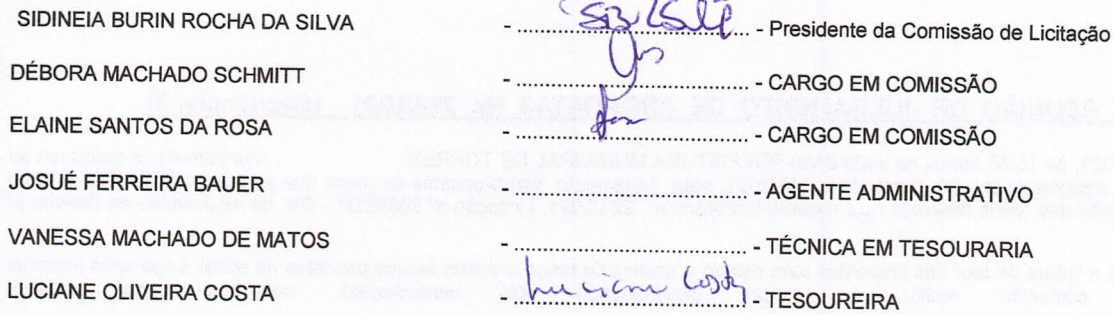 SIDINEIA BURIN ROCHA DA SILVA - ........................ - Presidente da Comissão de Licitação
DÉBORA MACHADO SCHMITT - ........................ - CARGO EM COMISSÃO
ELAINE SANTOS DA ROSA - ........................ - CARGO EM COMISSÃO
JOSUÉ FERREIRA BAUER - ........................ - AGENTE ADMINISTRATIVO
VANESSA MACHADO DE MATOS - ........................ - TÉCNICA EM TESOURARIA
LUCIANE OLIVEIRA COSTA - Luciane Costa - TESOUREIRA